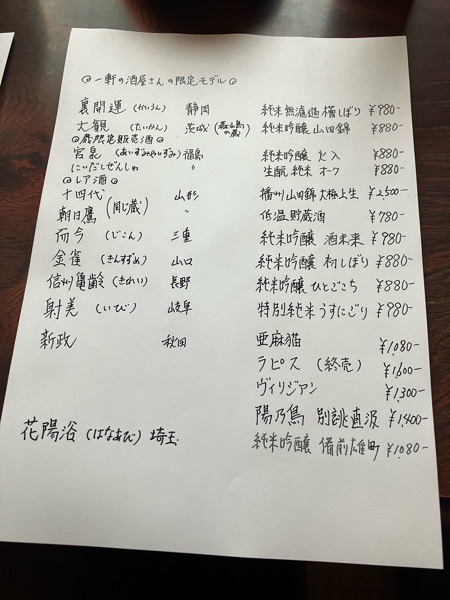 ◎一軒の酒屋さんの限定モデル◎
裏開運 (かいうん) 静岡 純米無濾過槽しぼり ¥980-
大観 (たいかん) 茨城 純米吟醸 山田錦 ¥880-
◎蔵限定販売酒◎
宮泉 (あいづみやいずみ) 福島 純米吟醸 火入 ¥880-
にいだしぜんしゅ 〃 生酛 純米 オーク ¥880-
◎レア酒◎
十四代 (同じ蔵) 山形 播州山田錦大極上生 ¥2,500-
朝日鷹 〃 低温貯蔵酒 ¥780-
而今 (じこん) 三重 純米吟醸 酒未来 ¥980-
金雀 (きんすずめ) 山口 純米吟醸 初しぼり ¥880-
信州亀齢 (きれい) 長野 純米吟醸 ひとごこち ¥880-
射美 (いび) 岐阜 特別純米うすにごり ¥980-
新政 秋田 亜麻猫 ¥1,080-
ラピス (終売) ¥1,600-
ヴィリジアン ¥1,300-
陽乃鳥 別誂直汲 ¥1,400-
花陽浴 (はなあび) 埼玉 純米吟醸 備前雄町 ¥1,080-